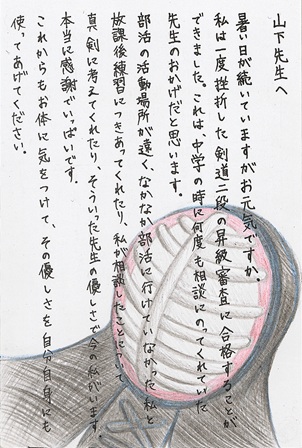 山下先生へ
暑い日が続いていますがお元気ですか。
私は一度挫折した剣道二段の昇級審査に合格することが
できました。これは、中学の時に何度も相談にのってくれていた
先生のおかげだと思います。
部活の活動場所が遠く、なかなか部活に行けていなかった私と
放課後練習につきあってくれたり、私が相談したことについて
真剣に考えてくれたり、そういった先生の優しさで今の私がいます。
本当に感謝でいっぱいです。
これからもお体に気をつけて、その優しさを自分自身にも
使ってあげてください。